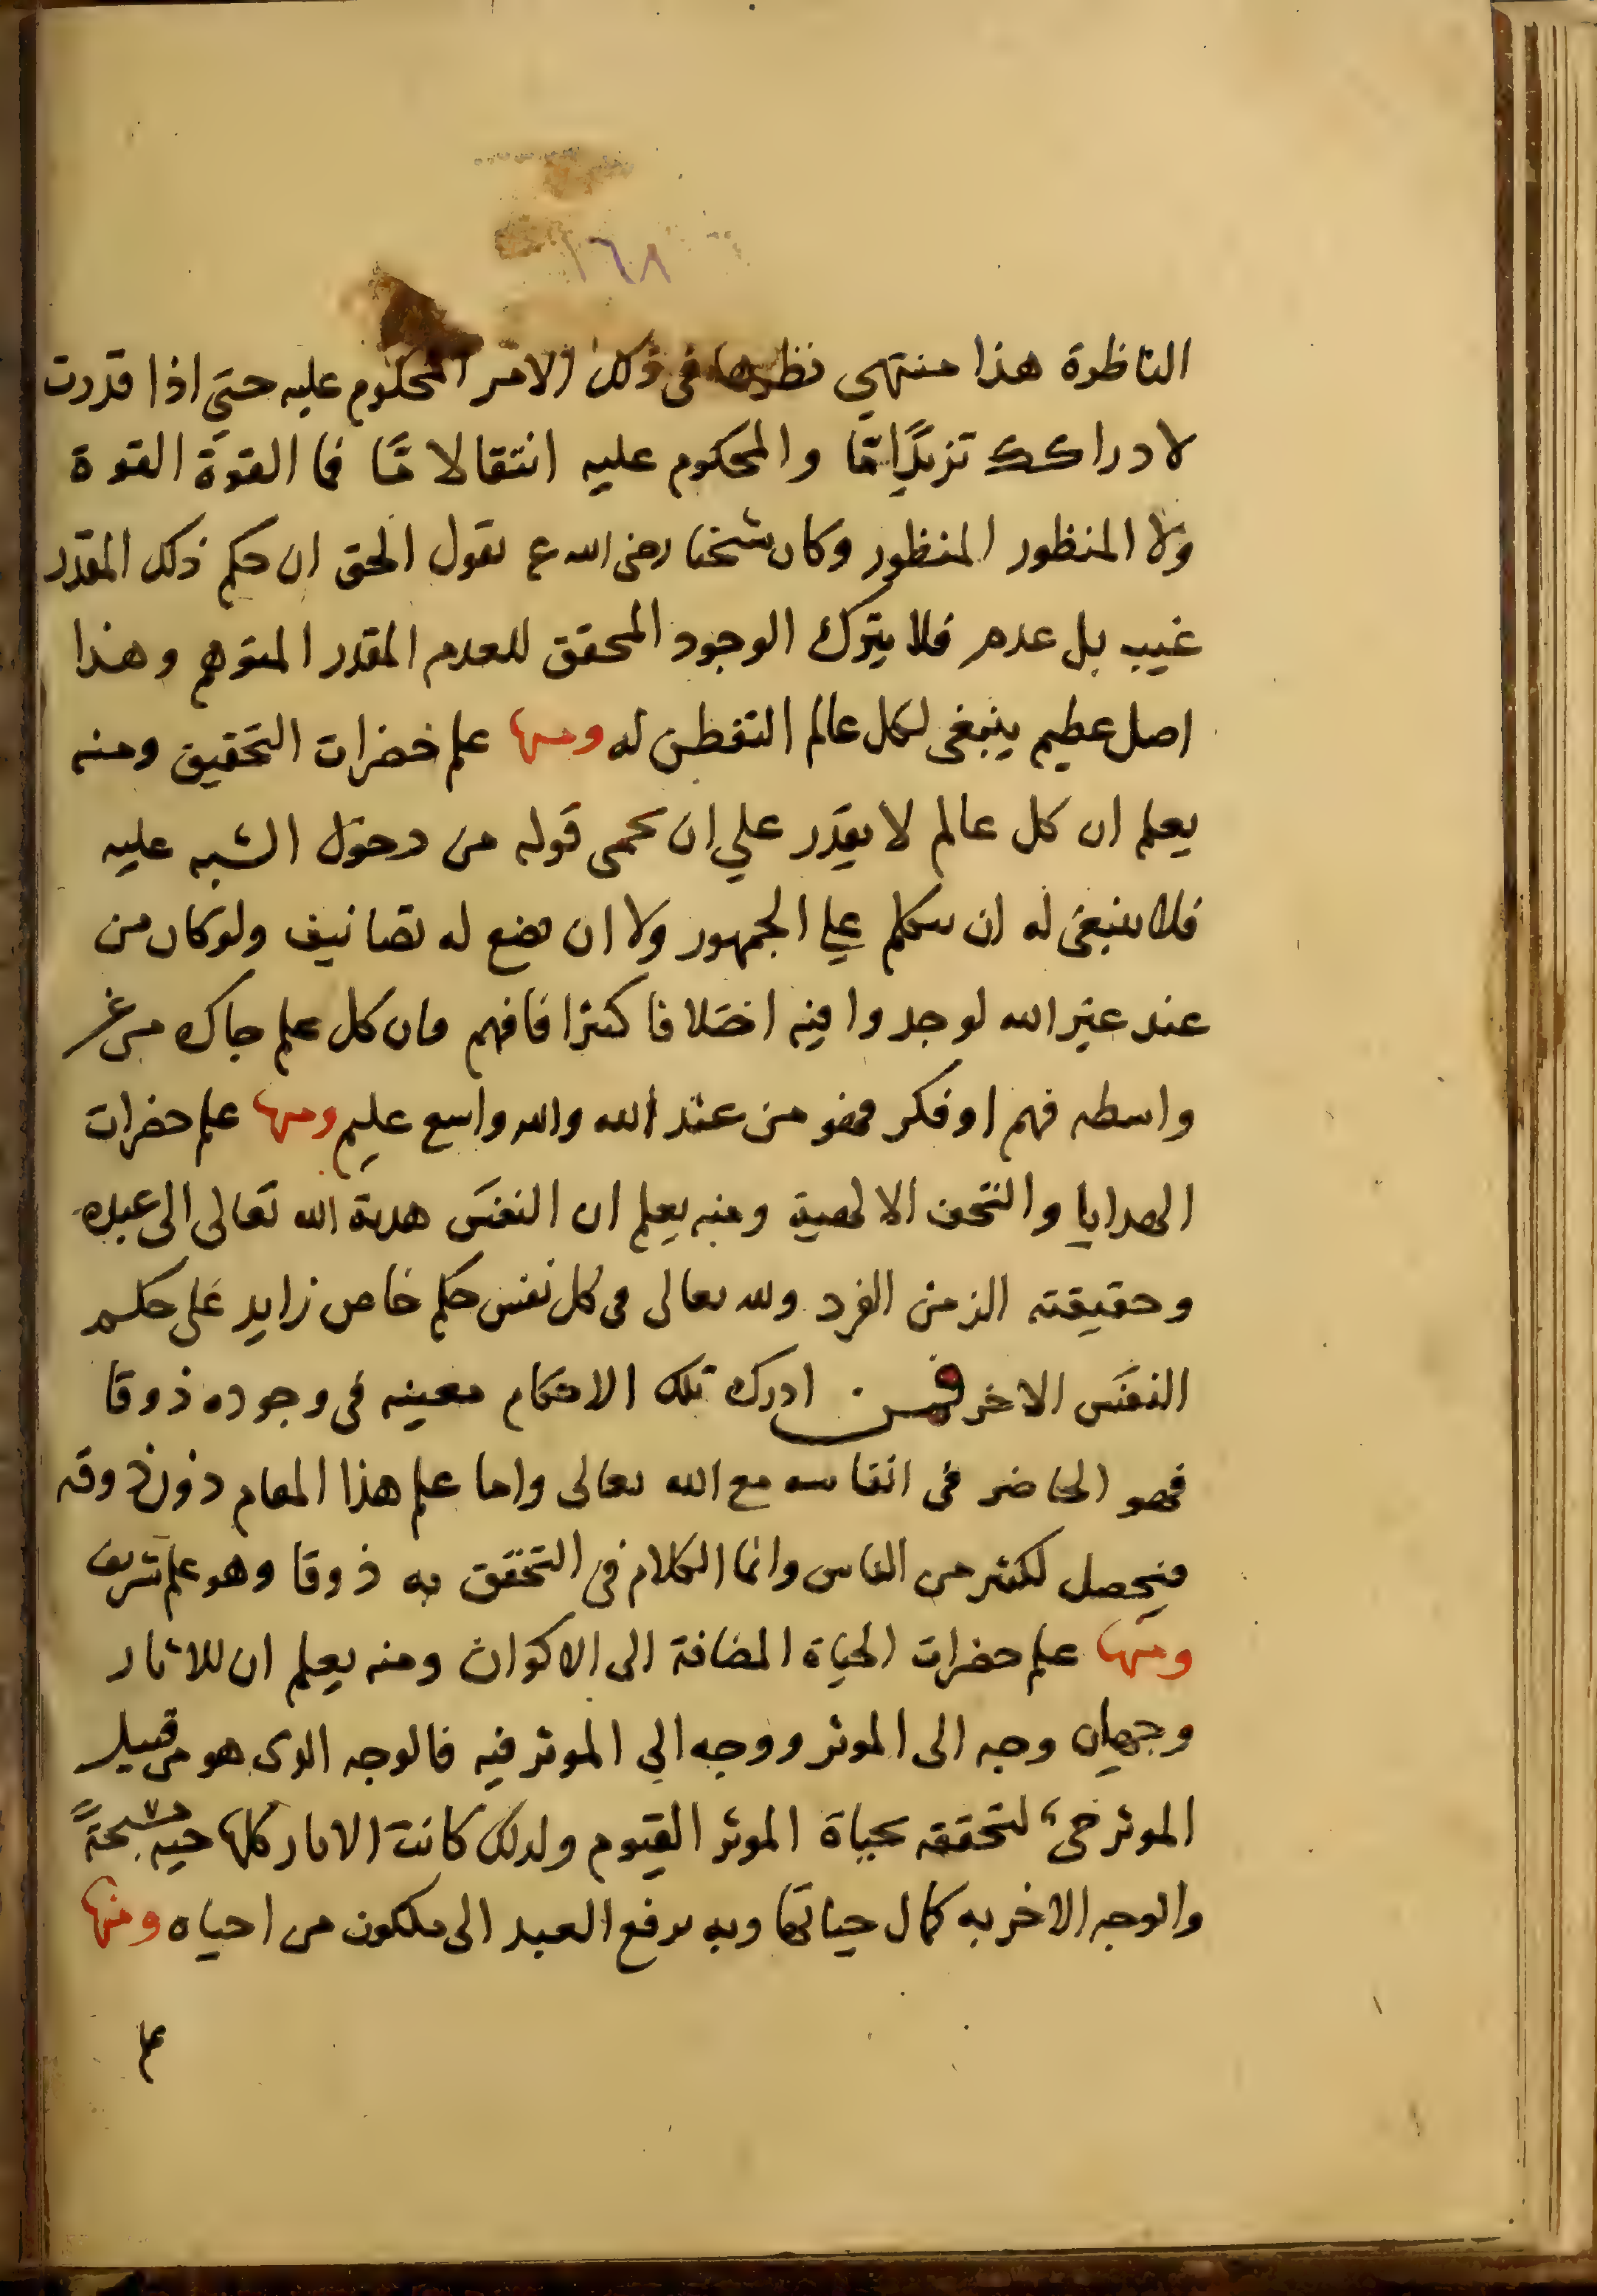 ١٦٨
الناظرة هذا منتهي نظرها في ذلك الامر المحكوم عليه حتي اذا قدرت
لادراكك تزيدًا مّا والمحكوم عليه انتقالا مّا فما القوة القوة
ولا المنظور المنظور وكان شيخنا رضى الله ع يقول الحق ان حكم ذلك المقدر
غيب بل عدم فلا يترك الوجود المحقق للعدم المقدر المتوهم وهذا
اصل عظيم ينبغى لكل عالم التفطن له ومنها علم خضرات التحقيق ومنه
يعلم ان كل عالم لا يقدر علي ان يحمى قوله من دخول الشبه عليه
فلا ينبغى له ان يتكلم علي الجمهور ولا ان يضع له تصانيف ولو كان من
عند غير الله لوجدوا فيه اختلافا كثيرا فافهم فان كل علم جاك من غير
واسطه فهم او فكر فهو من عند الله والله واسع عليم ومنها علم حضرات
الهدايا والتحف الالهية ومنه يعلم ان النفس هدية الله تعالى الى عبده
وحقيقته الزمن الفرد ولله تعالى فى كل نفس حكم خاص زايد على حكم
النفس الاخر فمن ادرك تلك الاحكام معينه فى وجوده ذوقا
فهو الحاضر فى انفاسه مع الله تعالى واما علم هذا المقام دون ذوقه
فيحصل لكثير من الناس وانما الكلام فى التحقق به ذوقا وهو علم شريف
ومنها علم حضرات الحياة المضافة الى الاكوان ومنه يعلم ان للاثار
وجهان وجه الى الموثر ووجه الي الموثر فيه فالوجه الذى هو من قبيل
الموثر حى لتحققه بحياة الموثر القيوم ولذلك كانت الاثار كلها حيه مسبحةً
والوجه الاخر به كمال حياتها وبه يرفع العبد الى ملكوت من احياه ومنها
علم